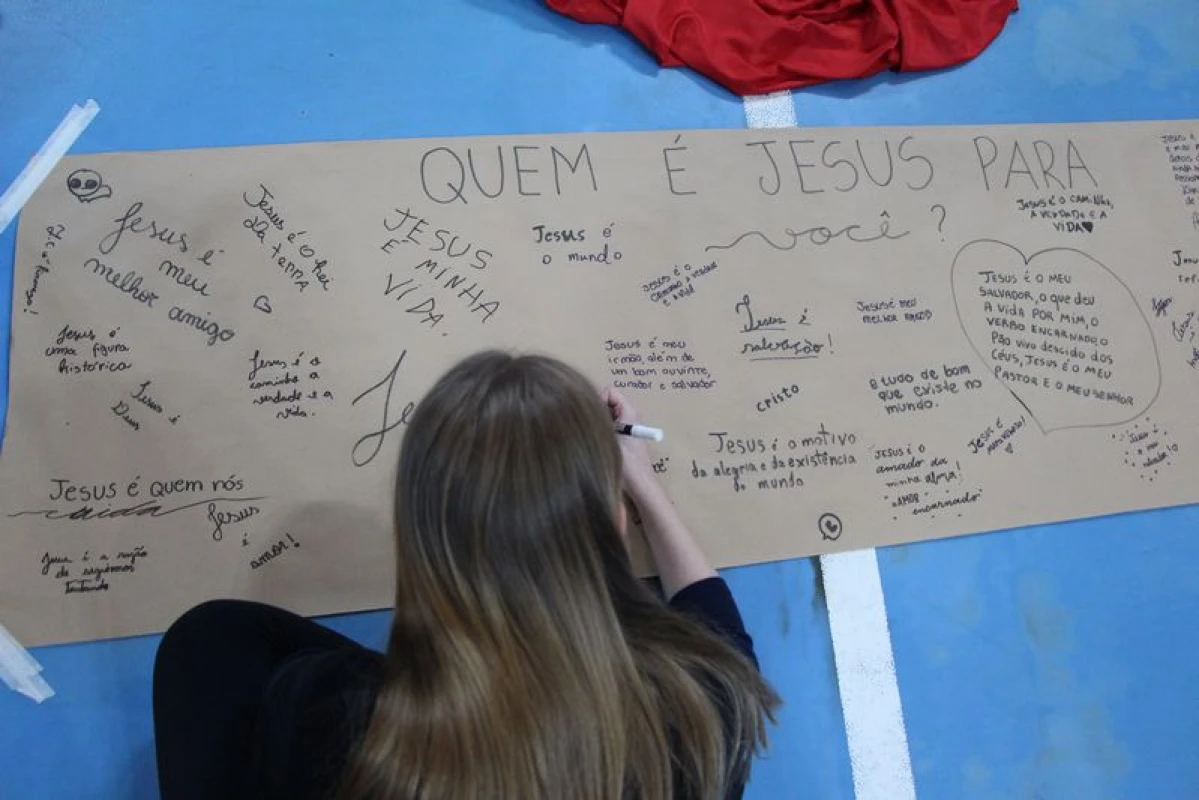 QUEM É JESUS PARA
você?
Jesus é
meu
melhor amigo
Jesus é o Rei
da terra
JESUS
É MINHA
VIDA.
Jesus é
o mundo
JESUS É O
CAMINHO A VERDADE
E A VIDA
JESUS É O CAMINHO,
A VERDADE E A
VIDA
Jesus é
uma figura
histórica
Jesus é
Deus
Jesus é o
caminho a
verdade e a
vida.
Je
Jesus é meu
irmão, além de
um bom ouvinte,
curador e salvador
Jesus é
salvação!
JESUS É MEU
MELHOR AMIGO
cristo
É tudo de bom
que existe no
mundo.
JESUS É O MEU
SALVADOR, O que deu
A VIDA POR MIM, O
VERBO ENCARNADO, O
PÃO VIVO descido dos
CÉUS, JESUS É O MEU
PASTOR E O MEU SENHOR
Jesus é o motivo
da alegria e da existência
do mundo
JESUS É O
amado da
minha alma!
AMOR
encarnado
Jesus é
Jesus é quem nós
cuida
Jesus
é
amor!
Jesus é a razão
de seguirmos
tentando